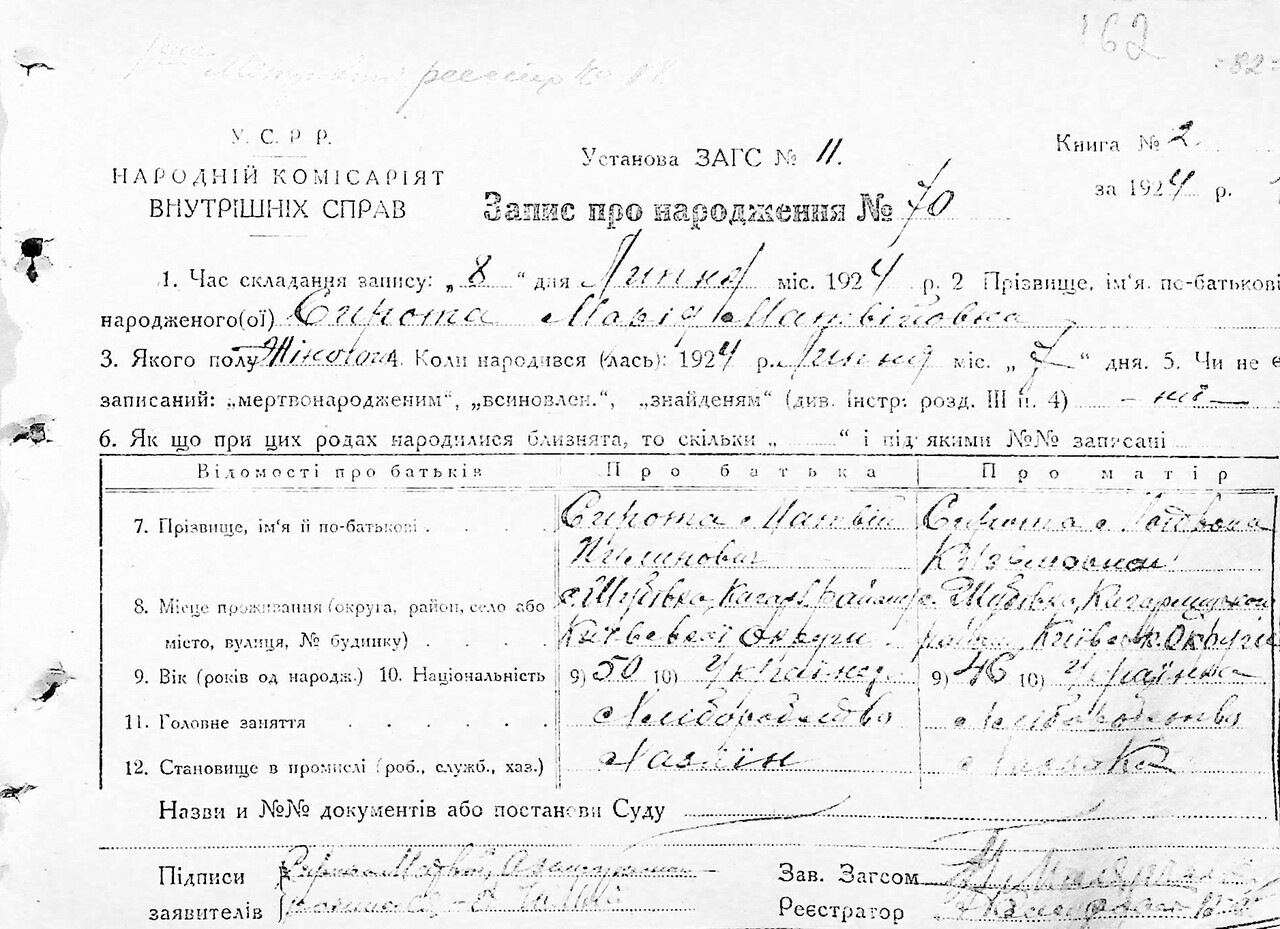 162
=82=
реєстр №
У. С. Р Р.
НАРОДНІЙ КОМІСАРІЯТ
ВНУТРІШНІХ СПРАВ
Установа ЗАГС № 11.
Запис про народження № 70
Книга № 2
за 1924 р.
1. Час складання запису: „8“ дня Липня міс. 1924 р. 2 Прізвище, ім'я, по-батькові
народженого(ої) Сирота Марія Матвійовна
3. Якого полу Жіночого 4. Коли народився (лась): 1924 р. Липня міс. „7“ дня. 5. Чи не є
записаний: „мертвонародженим“, „всиновлен.“, „знайденям“ (див. Інстр: розд. III п. 4) - ні -
6. Як що при цих родах народилися близнята, то скільки „ “ і під якими №№ записані
Відомості про батьків Про батька Про матір
7. Прізвище, ім'я й по-батькові Сирота Матвій Сирота
Пилипович
8. Місце проживання (округа, район, село або с. Шубівка, Кагарл. району с. Шубівка, Кагарлицького
місто, вулиця, № будинку) Київської Округи району Київськ. Округи
9. Вік (років од народж.) 10. Національність 9) 50 10) Українец. 9) 46 10) Українка
11. Головне заняття Хліборобство Хліборобство
12. Становище в промислі (роб., служб., хаз.) Хазяїн Хазяйка
Назви и №№ документів або постанови Суду
Підписи Сирота Матвій
заявителів
Зав. Загсом
Реєстратор